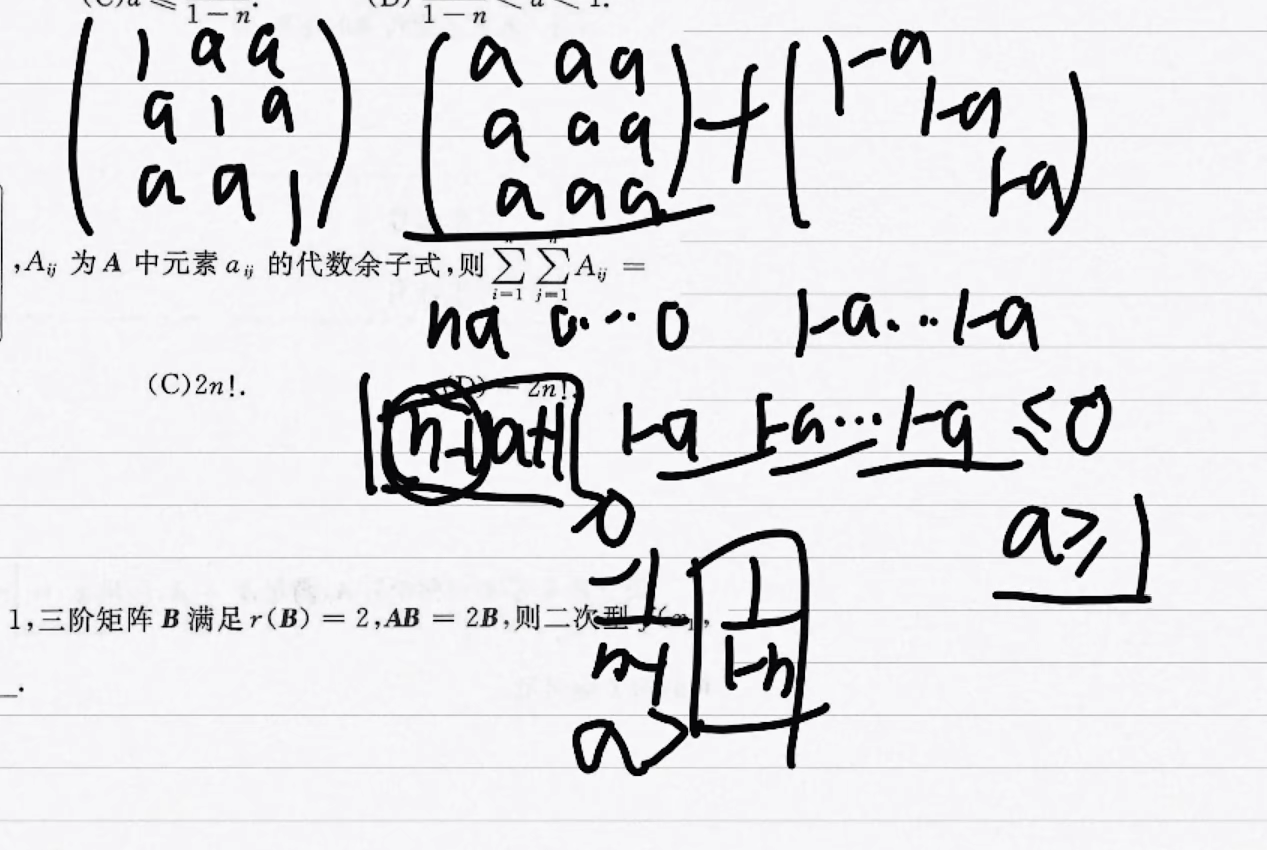 (C)a ⩽ 1/(1−n). (D) 1/(1−n) < a < 1.
( 1 a a ) ( a a a ) + ( 1-a )
( a 1 a ) ( a a a ) ( 1-a )
( a a 1 ) ( a a a ) ( 1-a )
,Aᵢⱼ 为 A 中元素 aᵢⱼ 的代数余子式,则 ∑ⁿᵢ₌₁ ∑ⁿⱼ₌₁ Aᵢⱼ =
na 0...0 1-a...1-a
(C)2n!. (D)−2n!.
(n-1)a+1 1-a 1-a...1-a ≤0
>0 a≥1
-1/(n-1) 1/(1-n)
1,三阶矩阵 B 满足 r(B) = 2,AB = 2B,则二次型 f(x₁,
a>